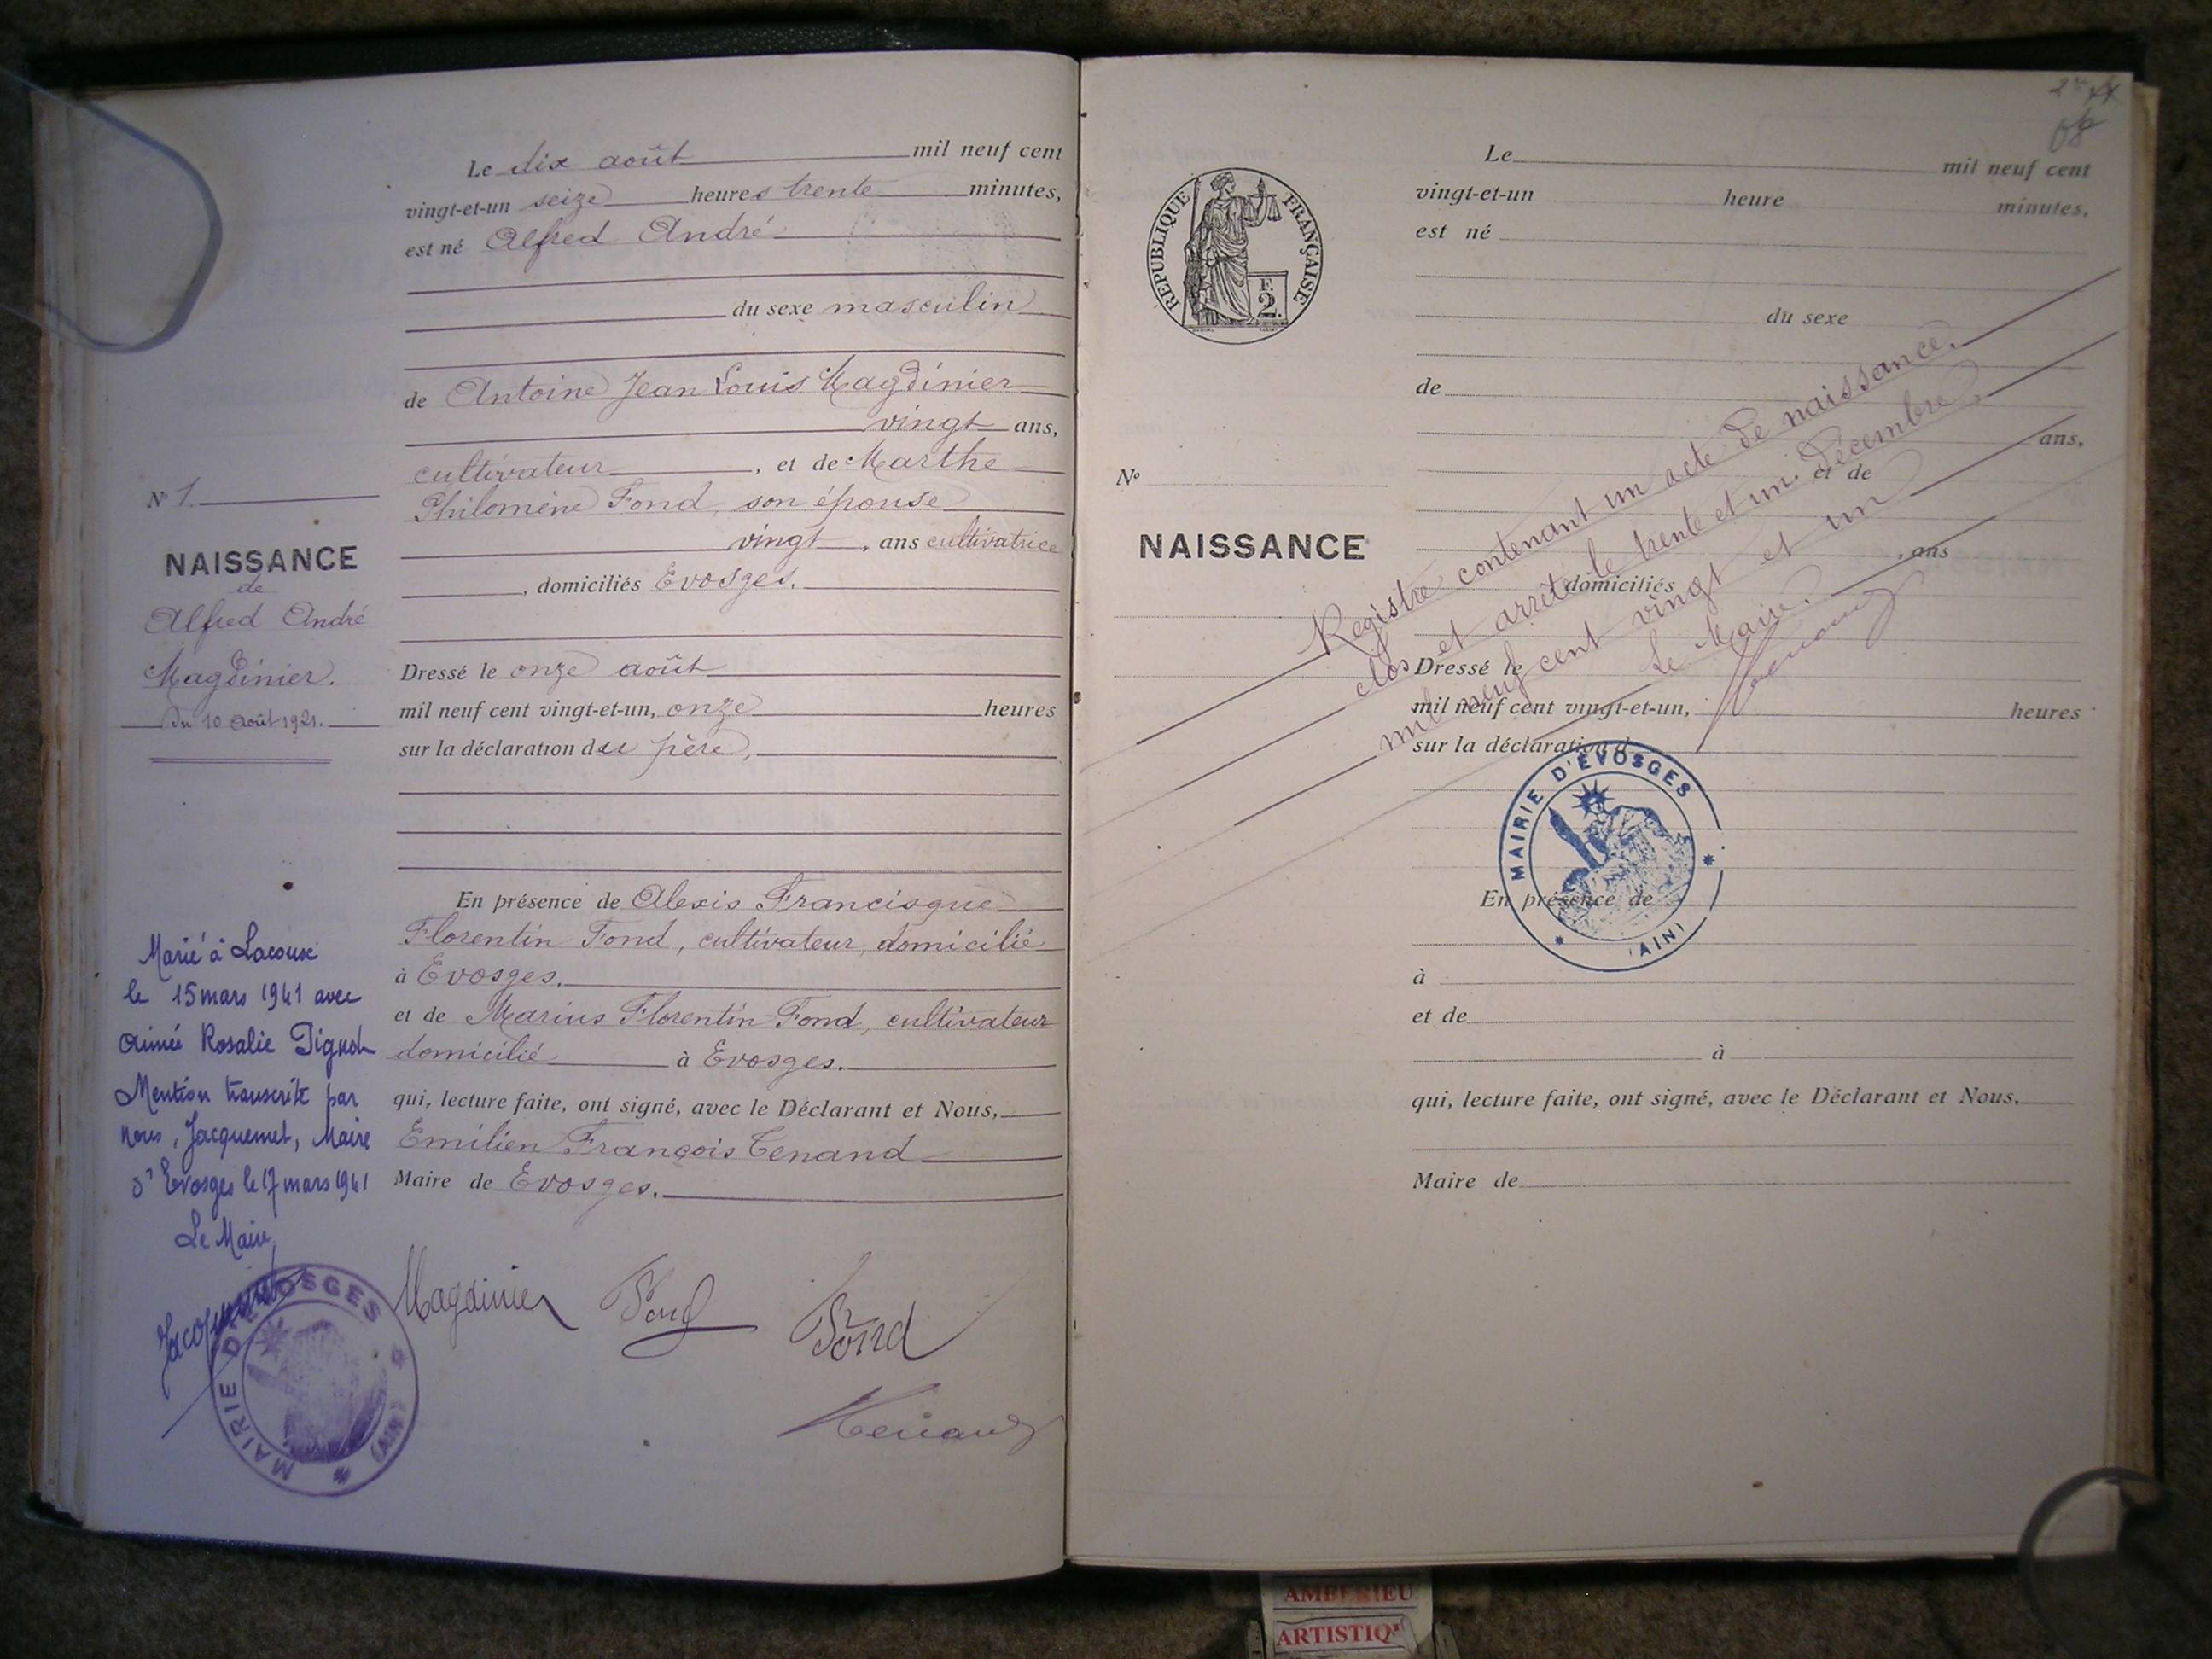 Le dix août mil neuf cent
vingt-et-un seize heures trente minutes,
est né Alfred André
du sexe masculin
de Antoine Jean Louis Magdinier
vingt ans,
cultivateur, et de Marthe
Philomène Fond, son épouse
vingt, ans cultivatrice
, domiciliés Evosges.
Dressé le onze août
mil neuf cent vingt-et-un, onze heures
sur la déclaration du père,
En présence de Alexis Francisque
Florentin Fond, cultivateur, domicilié
à Evosges.
et de Marius Florentin Fond, cultivateur
domicilié à Evosges.
qui, lecture faite, ont signé, avec le Déclarant et Nous,
Emilien François Tenand
Maire de Evosges.
Magdinier Fond Fond
Tenand
N° 1.
NAISSANCE
de
Alfred André
Magdinier.
du 10 août 1921.
Marié à Lacoux
le 15 mars 1941 avec
Aimée Rosalie
Mention transcrite par
nous, Jacquemet, Maire
d'Evosges le 17 mars 1941
Le Maire,
Jacquemet
MAIRIE D'EVOSGES
(AIN)
2
REPUBLIQUE FRANÇAISE
F.
2.
Le mil neuf cent
vingt-et-un heure minutes,
est né
du sexe
de
ans,
et de
, ans
domiciliés
Dressé le
mil neuf cent vingt-et-un, heures
sur la déclaration d
En présence de
à
et de
à
qui, lecture faite, ont signé, avec le Déclarant et Nous,
Maire de
N°
NAISSANCE
Registre contenant un acte de naissance.
clos et arrêté le trente et un décembre
mil neuf cent vingt et un
Le Maire.
Tenand
MAIRIE D'EVOSGES
(AIN)
AMBERIEU
ARTISTIQ